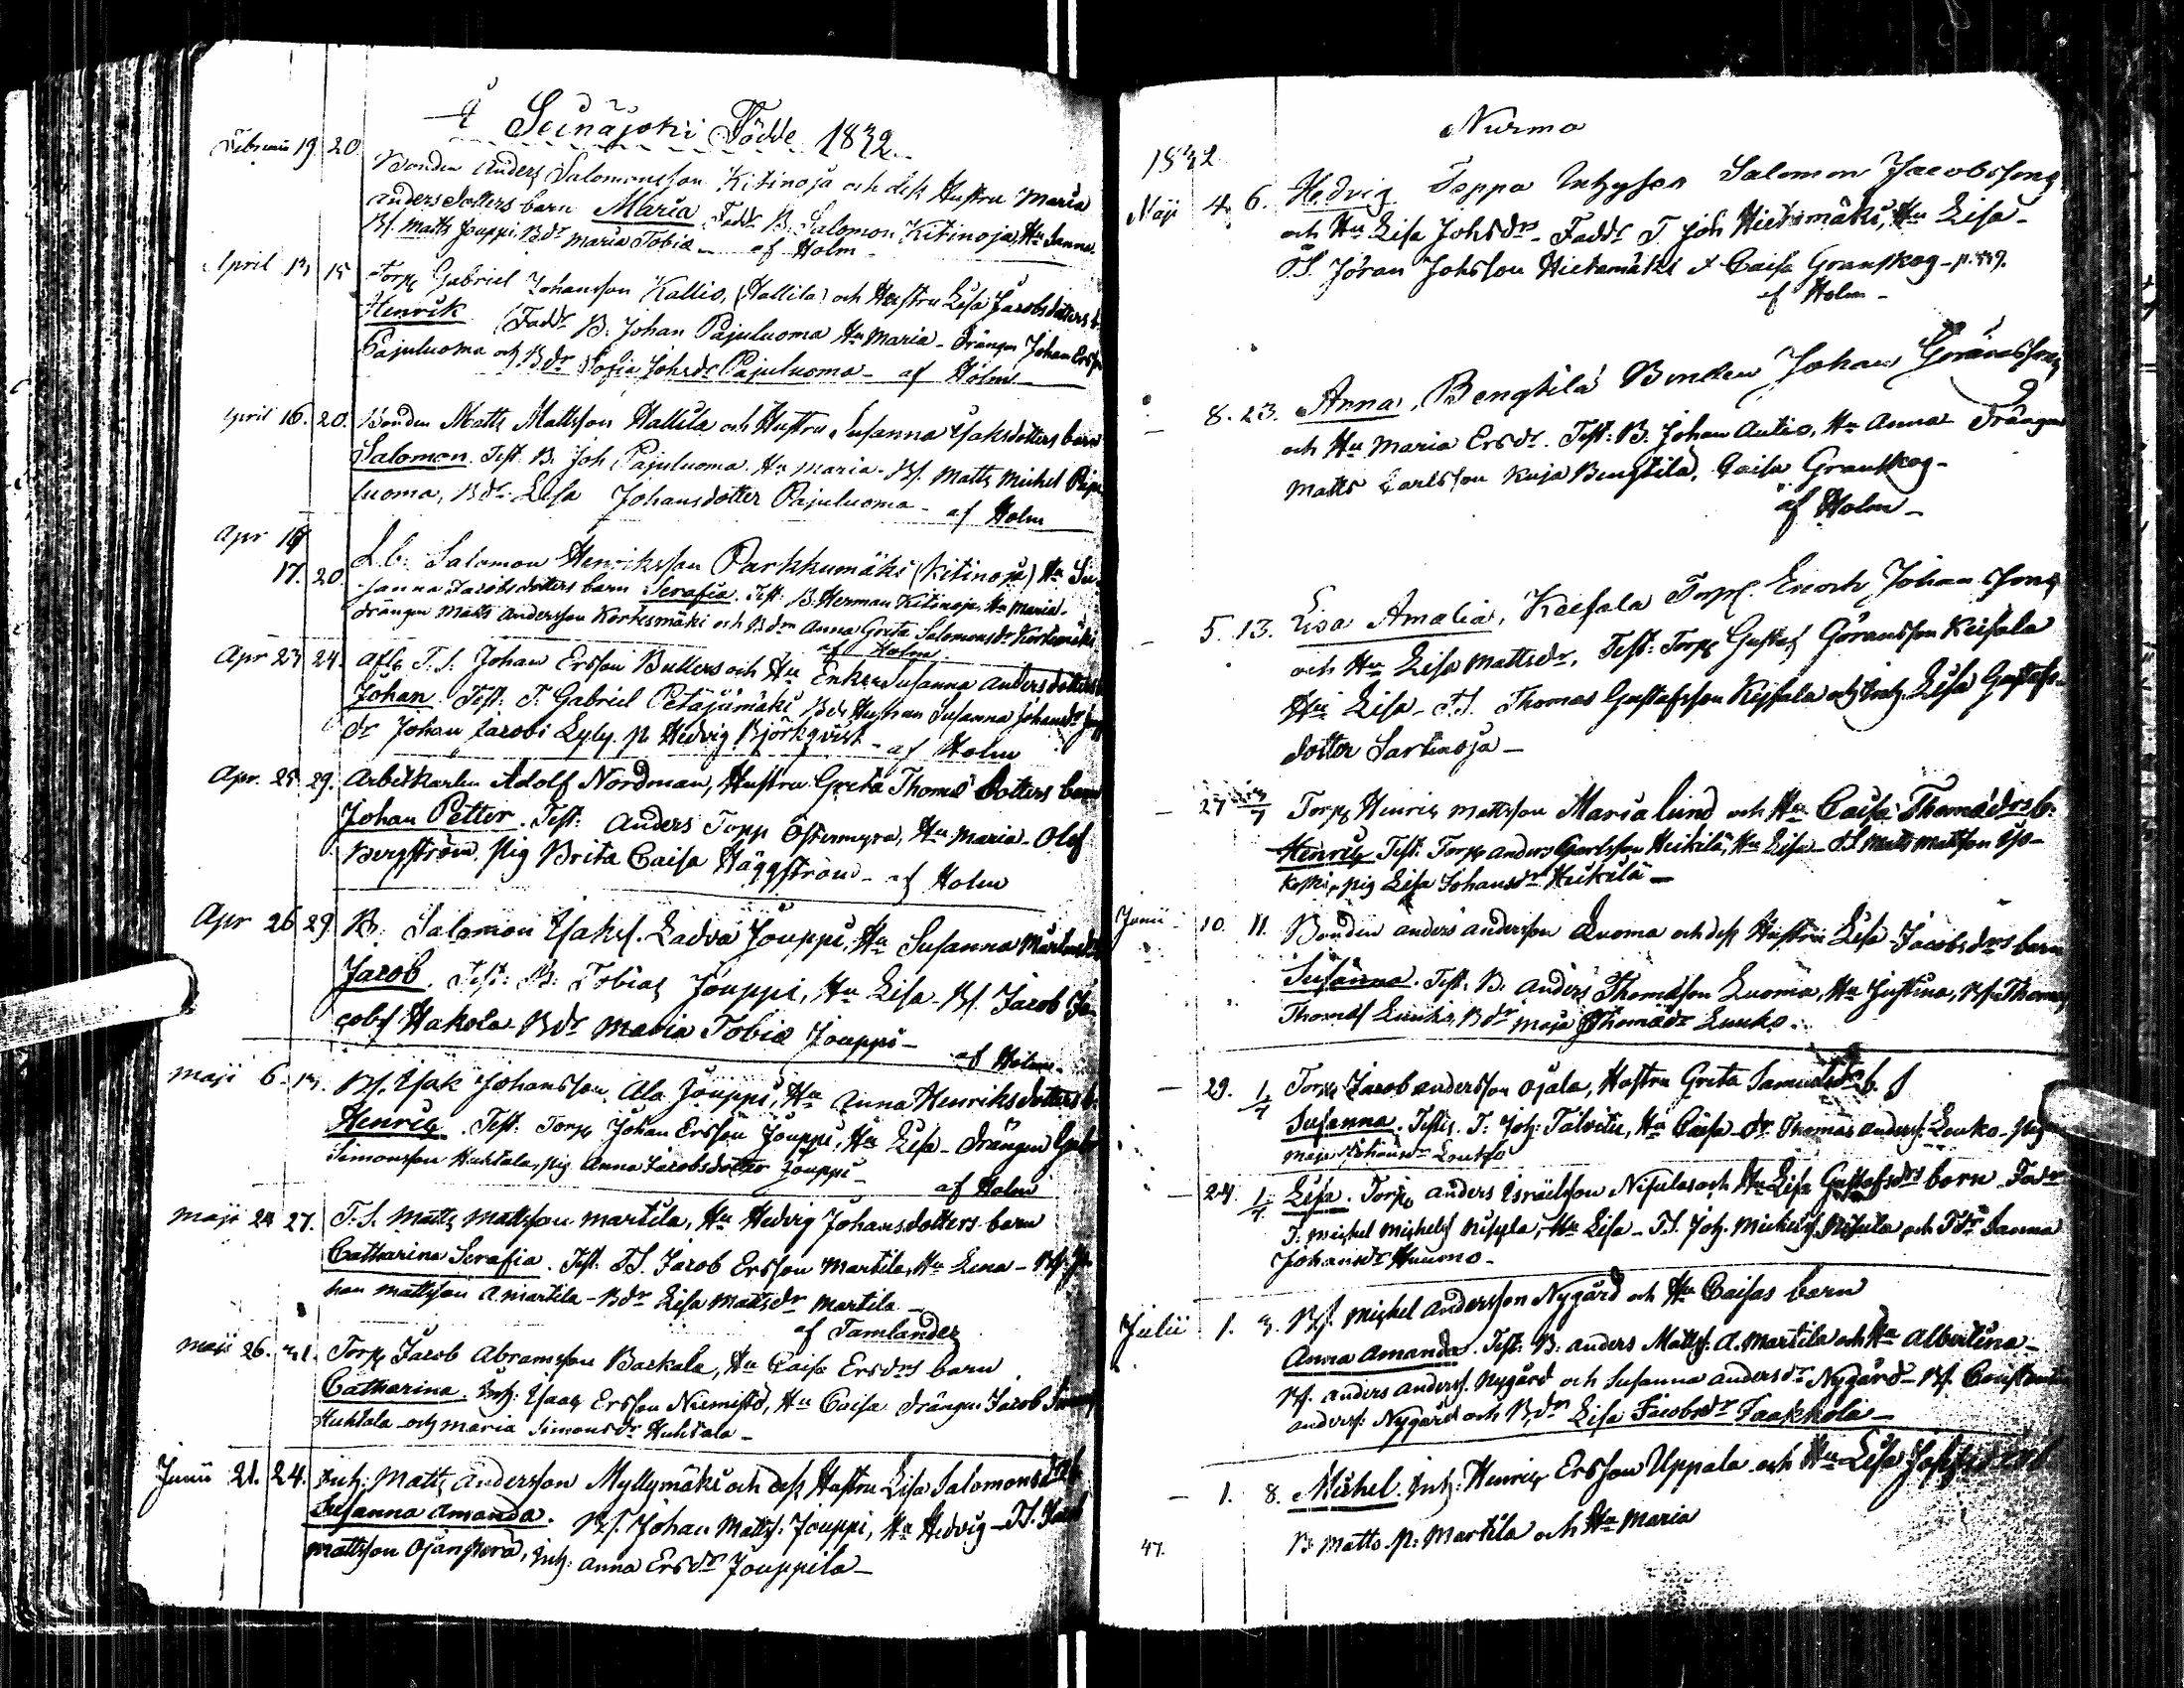 Seinäjoki Födde 1832
Februarii 19 20 Bonden Anders Salomonsson Kitinoja och dess Hustru Maria
Anders dotters barn Maria. Fadd. B. Salomon Kitinoja, Hu Sanna.
Bs. Matts Jouppi. Bdr Maria Tobiæ af Holm
April 13 15 Torp Gabriel Johansson Kallio, (Hallila) och Hustru Lisa Jacobsdotters b.
Henrik (Fadd. B. Johan Pajuluoma Hu Maria - Drängen Johan Erss
Pajuluoma och Bdr Sofia Johsdr Pajuluoma - af Holm
April 16. 20. Bonden Matts Mattsson Hallila och Hustru Susanna Isaksdotters barn
Salomon. Test. B. Joh Pajuluoma. Hu Maria. Bs. Matts Michel Paju
luoma, Bdr Lisa Johansdotter Pajuluoma - af Holm
Apr 17. 20. Salomon Henriksson Parkkumäki (Kitinoja) Hu Su
sanna Jacobsdotters barn Serafia. Test. B. Herman Kitinoja, Hu Maria.
Drängen Matts Andersson Kortesmäki och Bdrn Anna Greta Salomonsdr Kortesmäki
af Holm
Apr 23 24. T.S. Johan Ersson Butters och Hu Enkan Susanna Anders dotters
Johan. Test. T. Gabriel Petäjämäki Susanna Johansdr
dr Johan Jacobi Lyly. p. Hedvig Björkqvist - af Holm
Apr. 25 29. Arbetkarlen Adolf Nordman, Hustru Greta Thomæ dotters barn
Johan Petter. Test: Anders Topp Östermyra, Hu Maria - Olof
Bergström. pig Brita Caisa Häggström - af Holm
Apr 26 29 B. Salomon Isaks. Ladva Jouppi, Hu Susanna
Jacob. Test: B. Tobias Jouppi, Hu Lisa - Bs. Jacob Ja
cobs Hakola Bdr Maria Tobiæ Jouppi -
af Holm
Maji 6. 13. Bs. Isak Johansson Ala Jouppi, Hu Anna Henriksdotters b.
Henric. Test. Torp Johan Ersson Jouppi, Hu Lisa - Drängen Gabr
Simonsson Huhtala, pig Anna Jacobsdotter Jouppi -
af Holm
Maji 24 27. T.S. Matts Mattsson Martila, Hu Hedvig Johansdotters barn
Catharina Serafia. Test. T.S. Jacob Ersson Martila, Hu Lena - Bs. Jo
han Mattsson A. Martila - Bdr Lisa Mattsdr Martila -
af Tamlander
Maji 26. 31. Torp Jacob Abramsson Backala, Hu Caisa Ersdrs barn
Catharina. Inh: Isaac Ersson Niemistö, Hu Caisa Drängen Jacob
Huhtala och Maria Simonsdr Huhtala -
Junii 21. 24. Inh: Matts Andersson Myllymäki och dess Hustru Lisa Salomonsdrs b
Susanna Amanda. Bs. Johan Matts. Jouppi, Hu Hedvig - T.S. Jacob
Mattsson Ojanperä, Inh: Anna Ersdr Jouppila -
Nurmo
1832
Maji 4. 6. Hedvig. Toppo Inhyses Salomon Jacobssons
och Hu Lisa Johsdrs - Fadd. T. Joh Hietamäki, Hu Lisa -
T.S. Jöran Johsson Hietamäki & Caisa Granskog - p.
af Holm -
8. 23. Anna, Bengtilä Bonden Johan Göranssons
och Hu Maria Ersdr. Test: B. Johan Autio, Hu Anna Drängen
Matts Carlsson Kuja Bengtilä, Caisa Granskog -
af Holm -
5. 13. Lisa Amalia, Keisala Torp. Enoch Johanssons
och Hu Lisa Mattsdr. Test: Torp Gustaf Göransson Keisala
Hu Lisa - T.S. Thomas Gustafsson Keisala och Inh. Lisa Gustafs
dotter Sartinoja -
27 1/7 Torp Henric Mattsson Marialund och Hu Caisa Thomædrs b.
Henric Test. Torp Anders Carlsson Heikilä, Hu Lisa - T.S. Matts Mattsson
koski, pig Lisa Johansdr Heikilä -
Junii 10. 11. Bonden Anders Andersson Luoma och dess Hustru Lisa Jacobsdrs barn
Susanna. Test. B. Anders Thomasson Luoma, Hu Justina, Bs. Thomas
Thomas Luuko, Bdr Maja Thomædr Luuko.
29. 1/7 Torp Jacob Andersson Ojala, Hustru Greta Samuelsdrs b.
Susanna. Testes. T. Joh: Talvitie, Hu Caisa - Dr. Thomas Anders. Louko - pig
Maja Johansdr Louko
24. 1/7. Lisa. Torp Anders Israelsson Nisula och Hu Lisa Gustafsdrs barn Fadr
T. Michel Michels Nisula, Hu Lisa - T.S. Joh. Michels. Nisula och Tdr Sanna
Johansdr Huumo -
Julii 1. 3. Bs. Michel Andersson Nygård och Hu Caisas barn
Anna Amanda. Test: B. Anders Matts: A. Martila och Hu Albertina -
Bs. Anders Anders. Nygård och Susanna Andersdr Nygård - Bs. Constantin
Anders. Nygård och Bdr Lisa Jacobsdr Jaakkola -
1. 8. Michel. Inh: Henric Ersson Uppala och Hu Lisa
B. Matts p: Martila och Hu Maria
47.